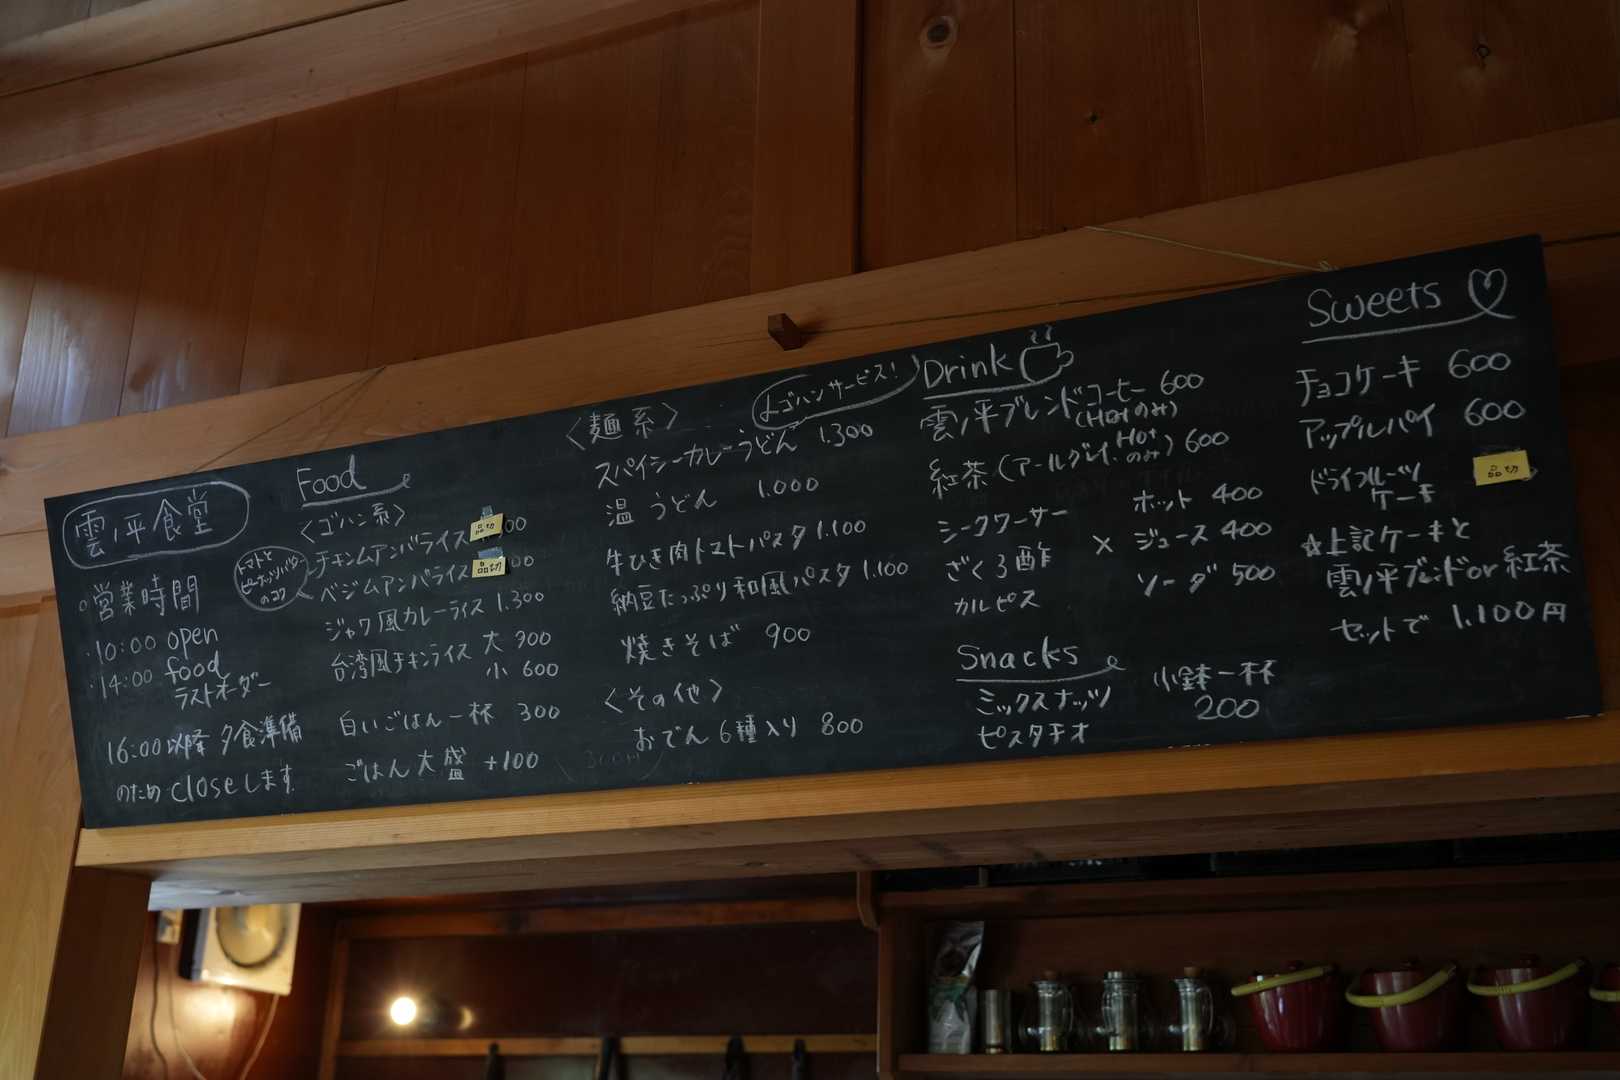 雲ノ平食堂
○営業時間
・10:00 open
・14:00 food
ラストオーダー
16:00以降 夕食準備
のため closeします.
Food
〈ゴハン系〉
トマトと
ピーナッツバター
のコク
チキンムアンバライス 品切 00
ベジムアンバライス 品切 00
ジャワ風カレーライス 1.300
台湾風チキンライス 大 900
小 600
白いごはん一杯 300
ごはん大盛 +100
〈麺系〉
ゴハンサービス!
スパイシーカレーうどん 1.300
温 うどん 1.000
牛ひき肉トマトパスタ 1.100
納豆たっぷり和風パスタ 1.100
焼きそば 900
〈その他〉
おでん 6種入り 800
Drink
雲ノ平ブレンドコーヒー 600
(Hotのみ)
紅茶 (アールグレイ. Hotのみ) 600
シークワーサー
ざくろ酢
カルピス
×
ホット 400
ジュース 400
ソーダ 500
Snacks
ミックスナッツ
ピスタチオ
小鉢一杯
200
Sweets
チョコケーキ 600
アップルパイ 600
ドライフルーツ
ケーキ 品切
☆上記ケーキと
雲ノ平ブレンドor紅茶
セットで 1.100円